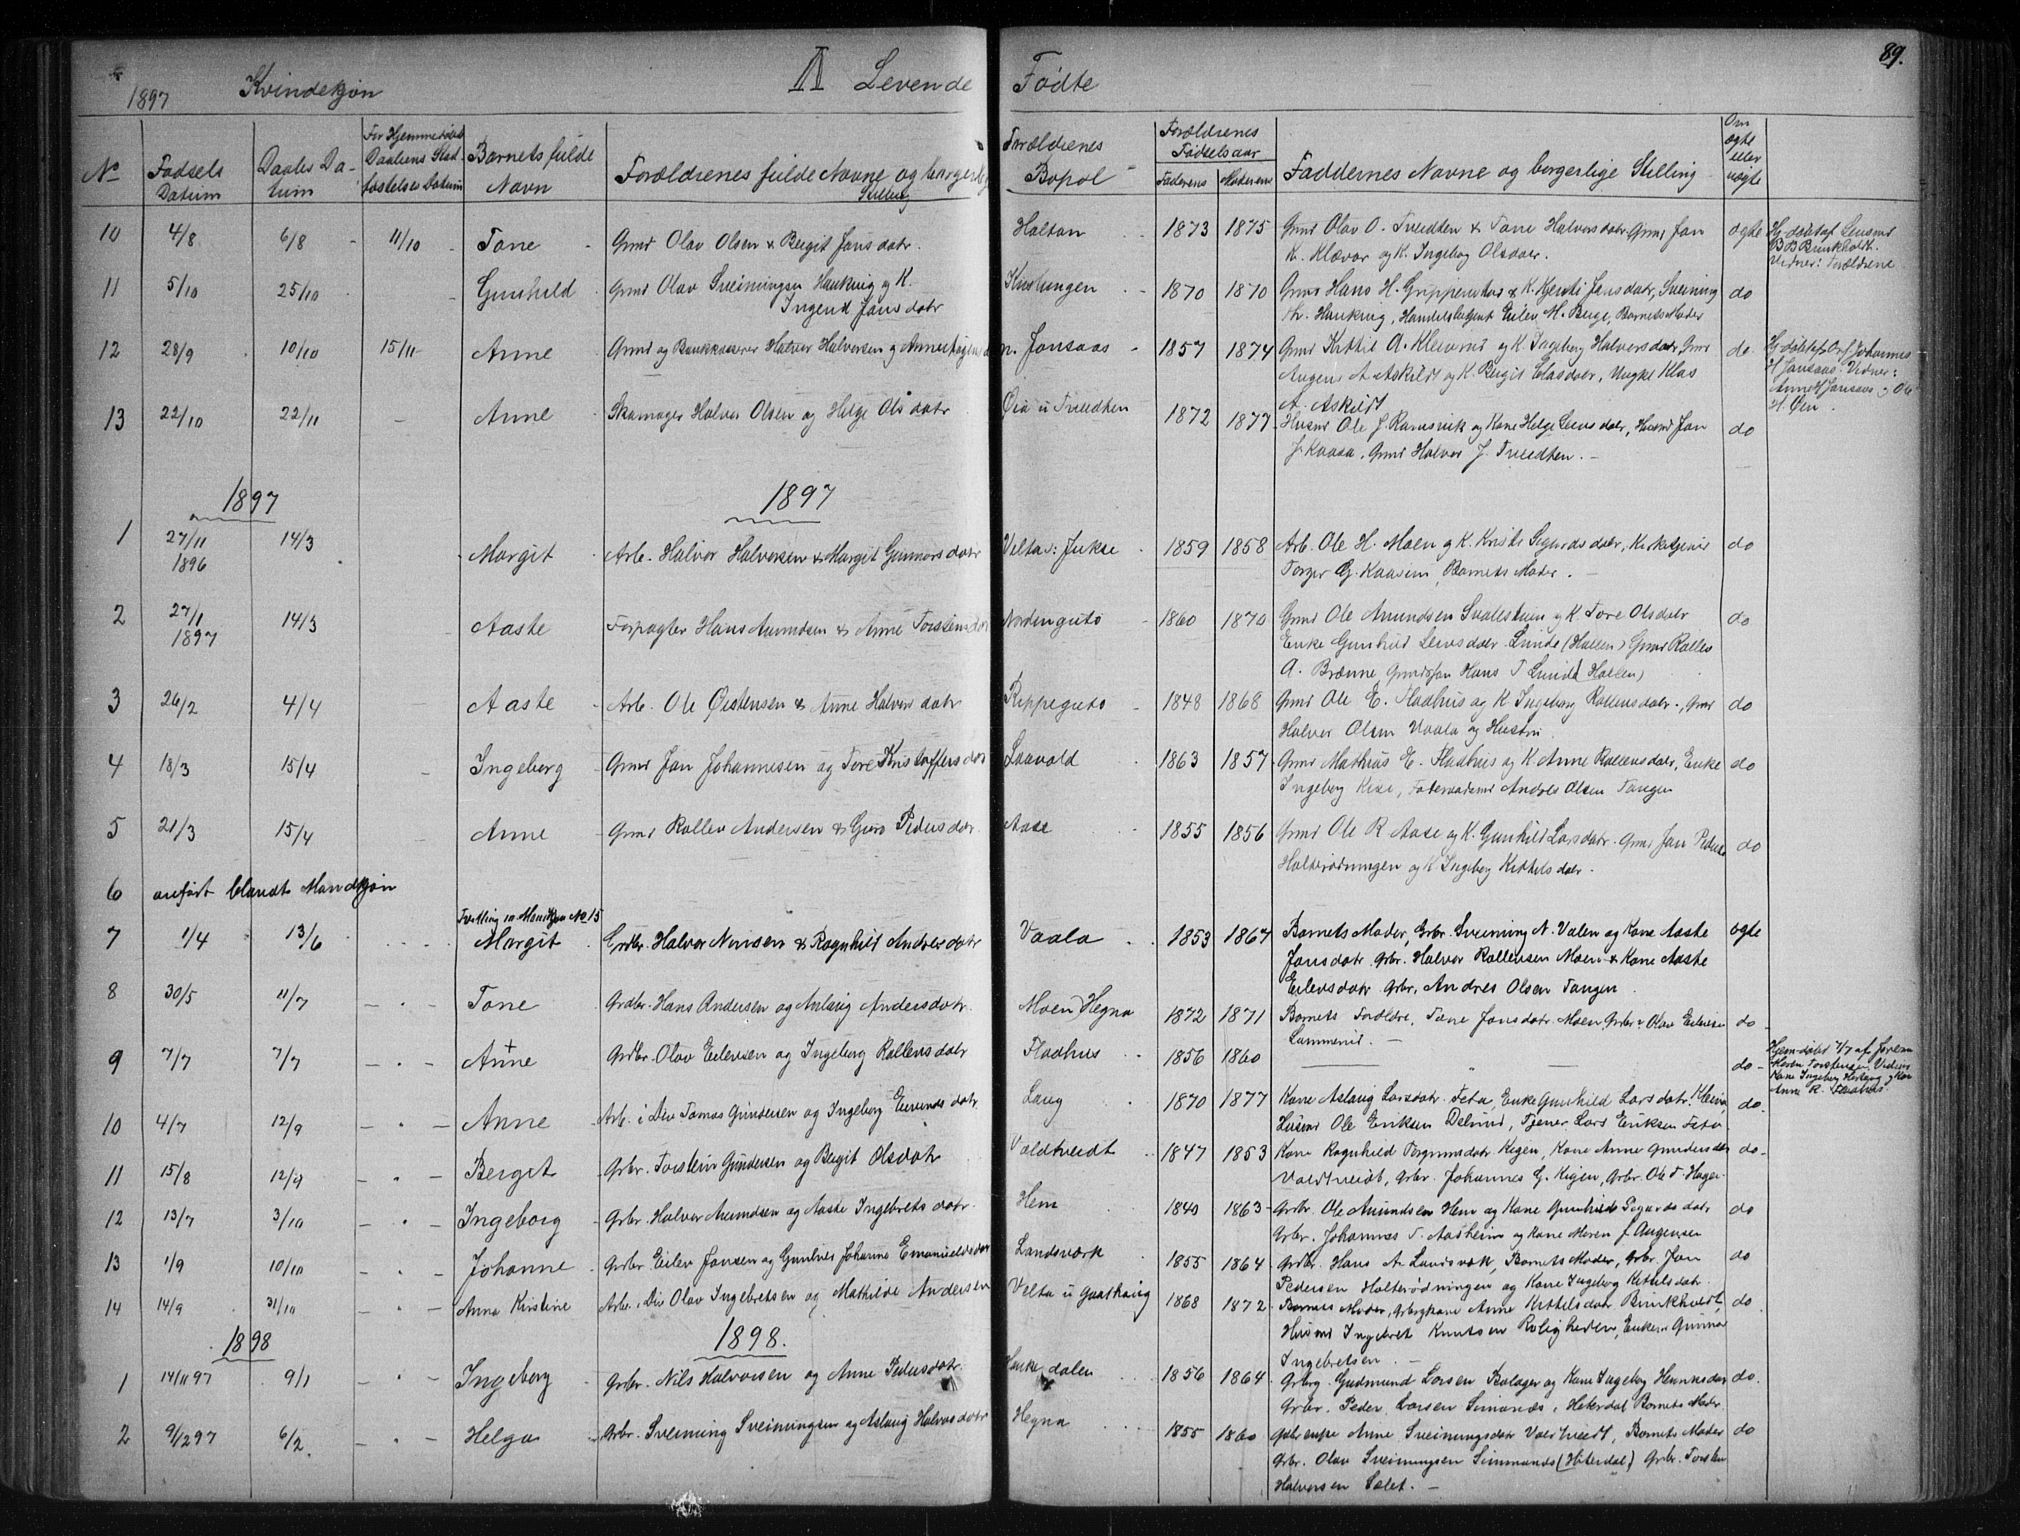 89.
1897 Kvindekjøn A Levende Fødte
No Fødsels Datum Daabs Datum For Hjemmedøbte Daabens Stadfæstelses Datum Barnets fulde Navn Forældrenes fulde Navne og borgerlige Stilling Forældrenes Bopæl Forældrenes Fødselsaar Faderens Moderens Faddernes Navne og borgerlige Stilling Om ægte eller uægte
10 4/8 6/8 - 11/10 - Tone - Gmd Olav Olsen & Bergit Jansdatr. Haltan 1873 1875 Gmd Olav O. Tveidten & Tone Halversdatr Gmd Jan
K. Klævar og K. Ingebog Olsdatr. ægte
Hj-døbt af Lensmd
B B Brinkholdt.
Vidner: Forældrene
11 5/10 25/10 Gunhild Gmd Olav Sveinungsen Haukrig og K.
Ingerid Jansdatr 1870 1870 Gmd Hans H. Gripperud & K. Kjersti Jansdatr, Sveinung
Haukrig, Handelsbetjent Eilev H. Berge, Barnets Moder do
12 28/9 10/10 15/11 Anne Gmd og Bankkasserer Halvor Halversen og Anne n. Jonsaas - 1857 1874 Gmd Kittil A. Kleivrud og K. Ingeborg Halversdatr, Gmd
A. Askildt og K. Bergit Clasdatr, Ungk Klas
A. Askildt do
Hj-døbt af Johannes
H Jonsaas. Vidner:
Anne H Jonsaas og Ole
H. Øen.
13 22/10 22/11 - Anne Skomager Halvor Olsen og Helge Olsdatr Øia u Tveidten 1872 1877 Husmd Ole J. Ramsvik og Kone Helge Leivsdatr, Husmd Jan
J. Kaasa, Gmd Halvor J. Tveidten. - do
1897 1897
1 27/11 1896 14/3 Margit Arb. Halvor Halversen & Margit Gunnarsdatr Velta u: Jukse 1859 1858 Arb. Ole H. Moen og K. Kristi Sigurdsdatr, Kirketjener
Torger G. Kaasin, Barnets Moder. - do
2 27/1 1897 14/3 Aaste Forpagter Hans Amundsen & Anne Torsteinsdatr Nordinguto 1860 1870 Gmd Ole Amundsen Svalestuen og K. Tore Olsdatr
Enke Gunhild Leivsdatr Lunde (Hallen) Gmd Rollev
A. Brænne, Gmdsøn Hans T Lunde (Hallen) do
3 26/2 4/4 Aaste Arb. Ole Østensen & Anne Halversdatr Rippeguto 1848 1868 Gmd Ole E. Fladhus og K Ingeborg Rollevsdatr., Gmd
Halvor Olsen Vaala og Hustru do
4 18/3 15/4 Ingeborg Gmd Jan Johannesen og Tore Kristoffersdatr Laavald 1863 1857 Gmd Mathias E. Fladhus og K Anne Rollevsdatr, Enke
Ingeborg Kise, Føderaadsmd Andres Olsen Tangen do
5 21/3 15/4 Anne Gmd Rollev Andersen & Guro Pedersdatr Aase 1855 1856 Gmd Ole R Aase og K. Gunhild Larsdatr. Gmd Jan Peders
Holterødningen og K. Ingebog Kittilsdatr. do
6 anført blandt Mandkjøn
7 1/4 13/6 Tvilling m Mandkjøn No 15
Margit Grdbr. Halvor Nirisen & Ragnhild Andresdatr Vaala 1853 1867 Barnets Moder, Grbr. Sveinung N. Valen og Kone Aaste
Jansdatr Grbr. Halvor Rollevsen Moen & Kone Aaste
Eilevsdatr Grbr. Andres Olsen Tangen. ægte
8 30/5 11/7 - - - Tone Grdbr. Hans Andersen og Aslaug Andersdatr. Moen Hegna 1872 1871 Barnets Forældre, Tone Jansdatr. Moen Grbr. Olav Eilevsen
do
9 7/7 7/7 Anne + Grdbr. Olav Eilevsen og Ingeborg Rollevsdatr Fladhus 1856 1860 " " do
Hjem-døbt 7/7 af Jorem
Maren Torstensen. Vidner
Kone Ingeborg og Kone
Anne R. Fladhus.
10 4/7 12/9 - - - Anne Arb. i Div Tomas Gundersen og Ingeborg Eivindsdatr Laug 1870 1877 Kone Aslaug Larsdatr. Feta, Enke Gunhild Larsdatr.
Husmd Ole Eriksen Delund, Tjener Lars Eriksen Feta do.
11 15/8 12/9 - - - Berget Grbr. Torstein Gundersen og Bergit Olsdatr Valdtveidt 1847 1853 Kone Ragnhild Torgrimsdatr Kigen, Kone Anne Gundersdatr
Valdtveidt, Grbr. Johannes G. Kigen, Grbr. Ole T. Hagen do
12 13/7 3/10 - - - Ingeborg Grbr. Halvor Amundsen og Aaste Ingebretsdatr. Hem 1840 1863 Grbr. Ole Amundsen Hem og Kone Gunhild Sigurdsdatr
Grbr. Johannes T. Aasheim og Kone Maren J. Augensen do
13 1/9 10/10 - - - Johanne Grdbr Eilev Jansen og Gunhild Johanne Emanuelsdatr Landsværk 1855 1864 Grdbr. Hans A. Landsværk, Barnets Moder, Grbr. Jan
Pedersen Holterødningen og Kone Ingeborg Kittelsdatr. do
14 14/9 31/10 Anna Kirstine Arbr. i Div Olav Ingebretsen og Mathilde Andersen Velta u Gaarhaug 1868 1872 Barnets Moder, Arbgkone Anne Kittelsdatr Brinkholdt,
Husmd Ingebret Knutsen Roligheden, Enkem Gunnar
Ingebretsen. - do
1898 1898.
1 14/11 97 9/1 - - - Ingeborg Grbr. Nils Halvorsen og Anne Pedersdatr. Haukedalen 1856 1864 Grbr. Gudmund Larsen Bolager og Kone Ingeborg Henriksdatr
Grbr. Peder Larsen Simonds, Heterdal Barnets Moder. do.
2 9/12 97 6/2. - - - Helga Grbr. Sveinung Sveinungsen og Aslaug Halvorsdatr Hegna 1855 1860 Grbr enke Anne Sveinungsdatr Valdtveidt, Barnets Moder
Grbr. Olav Sveinungsen Simmonds (Hiterdal) Grbr. Torsten
Halversen Sælet. - do